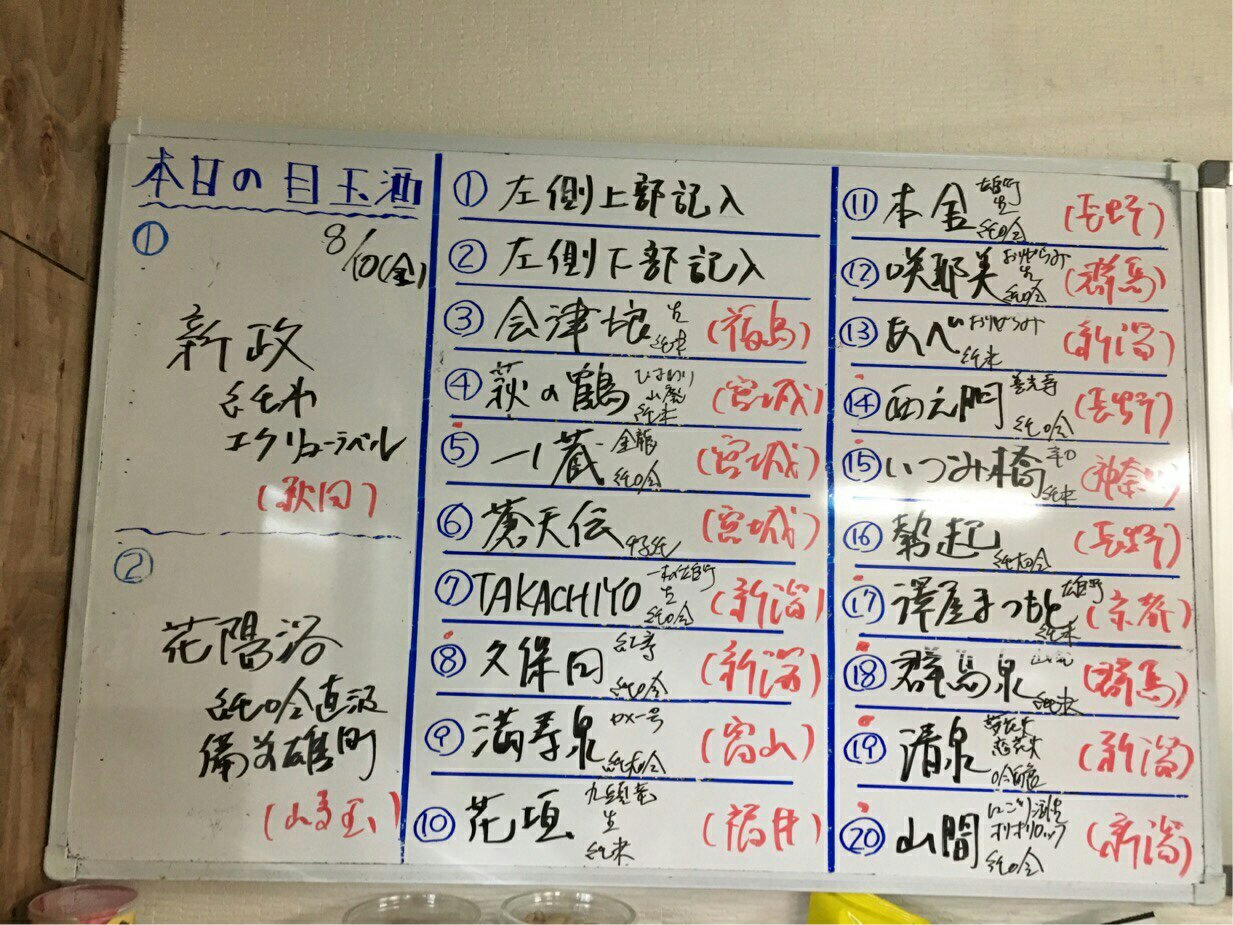 本日の目玉酒
①
8/10(金)
新政
純米
エクリューラベル
(秋田)
②
花陽浴
純吟直汲
備前雄町
(埼玉)
① 左側上部記入
② 左側下部記入
③ 会津娘 生 純米 (福島)
④ 萩の鶴 ひまわり 山廃 純米 (宮城)
⑤ 一ノ蔵 金龍 純吟 (宮城)
⑥ 蒼天伝 特純 (宮城)
⑦ TAKACHIYO 一本〆雄町 生 純吟 (新潟)
⑧ 久保田 紅寿 純吟 (新潟)
⑨ 満寿泉 純大吟 (富山)
⑩ 花垣 九頭竜 生 純米 (福井)
⑪ 本金 雄町 生 純吟 (長野)
⑫ 咲耶美 おりがらみ 生 純吟 (群馬)
⑬ あべ おりがらみ 純米 (新潟)
⑭ 西之門 善光寺 純吟 (長野)
⑮ いづみ橋 辛口 純米 (神奈川)
⑯ 勢起 純大吟 (長野)
⑰ 澤屋まつもと 純米 (京都)
⑱ 群馬泉 純米 (群馬)
⑲ 清泉 吟醸 (新潟)
⑳ 山間 にごり活性 オリオリロック 純吟 (新潟)